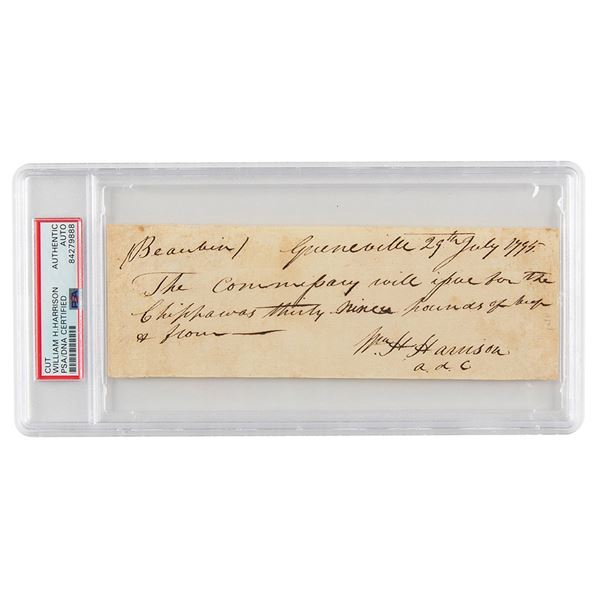 CUT
WILLIAM H.HARRISON
PSA/DNA CERTIFIED
AUTHENTIC
AUTO
84279888
PSA
(Beaubin) Greeneville 29th July 1795
The Commissary will issue for the
Chippawas thirty pounds of beef
& flour
Wm H Harrison
a. d. C